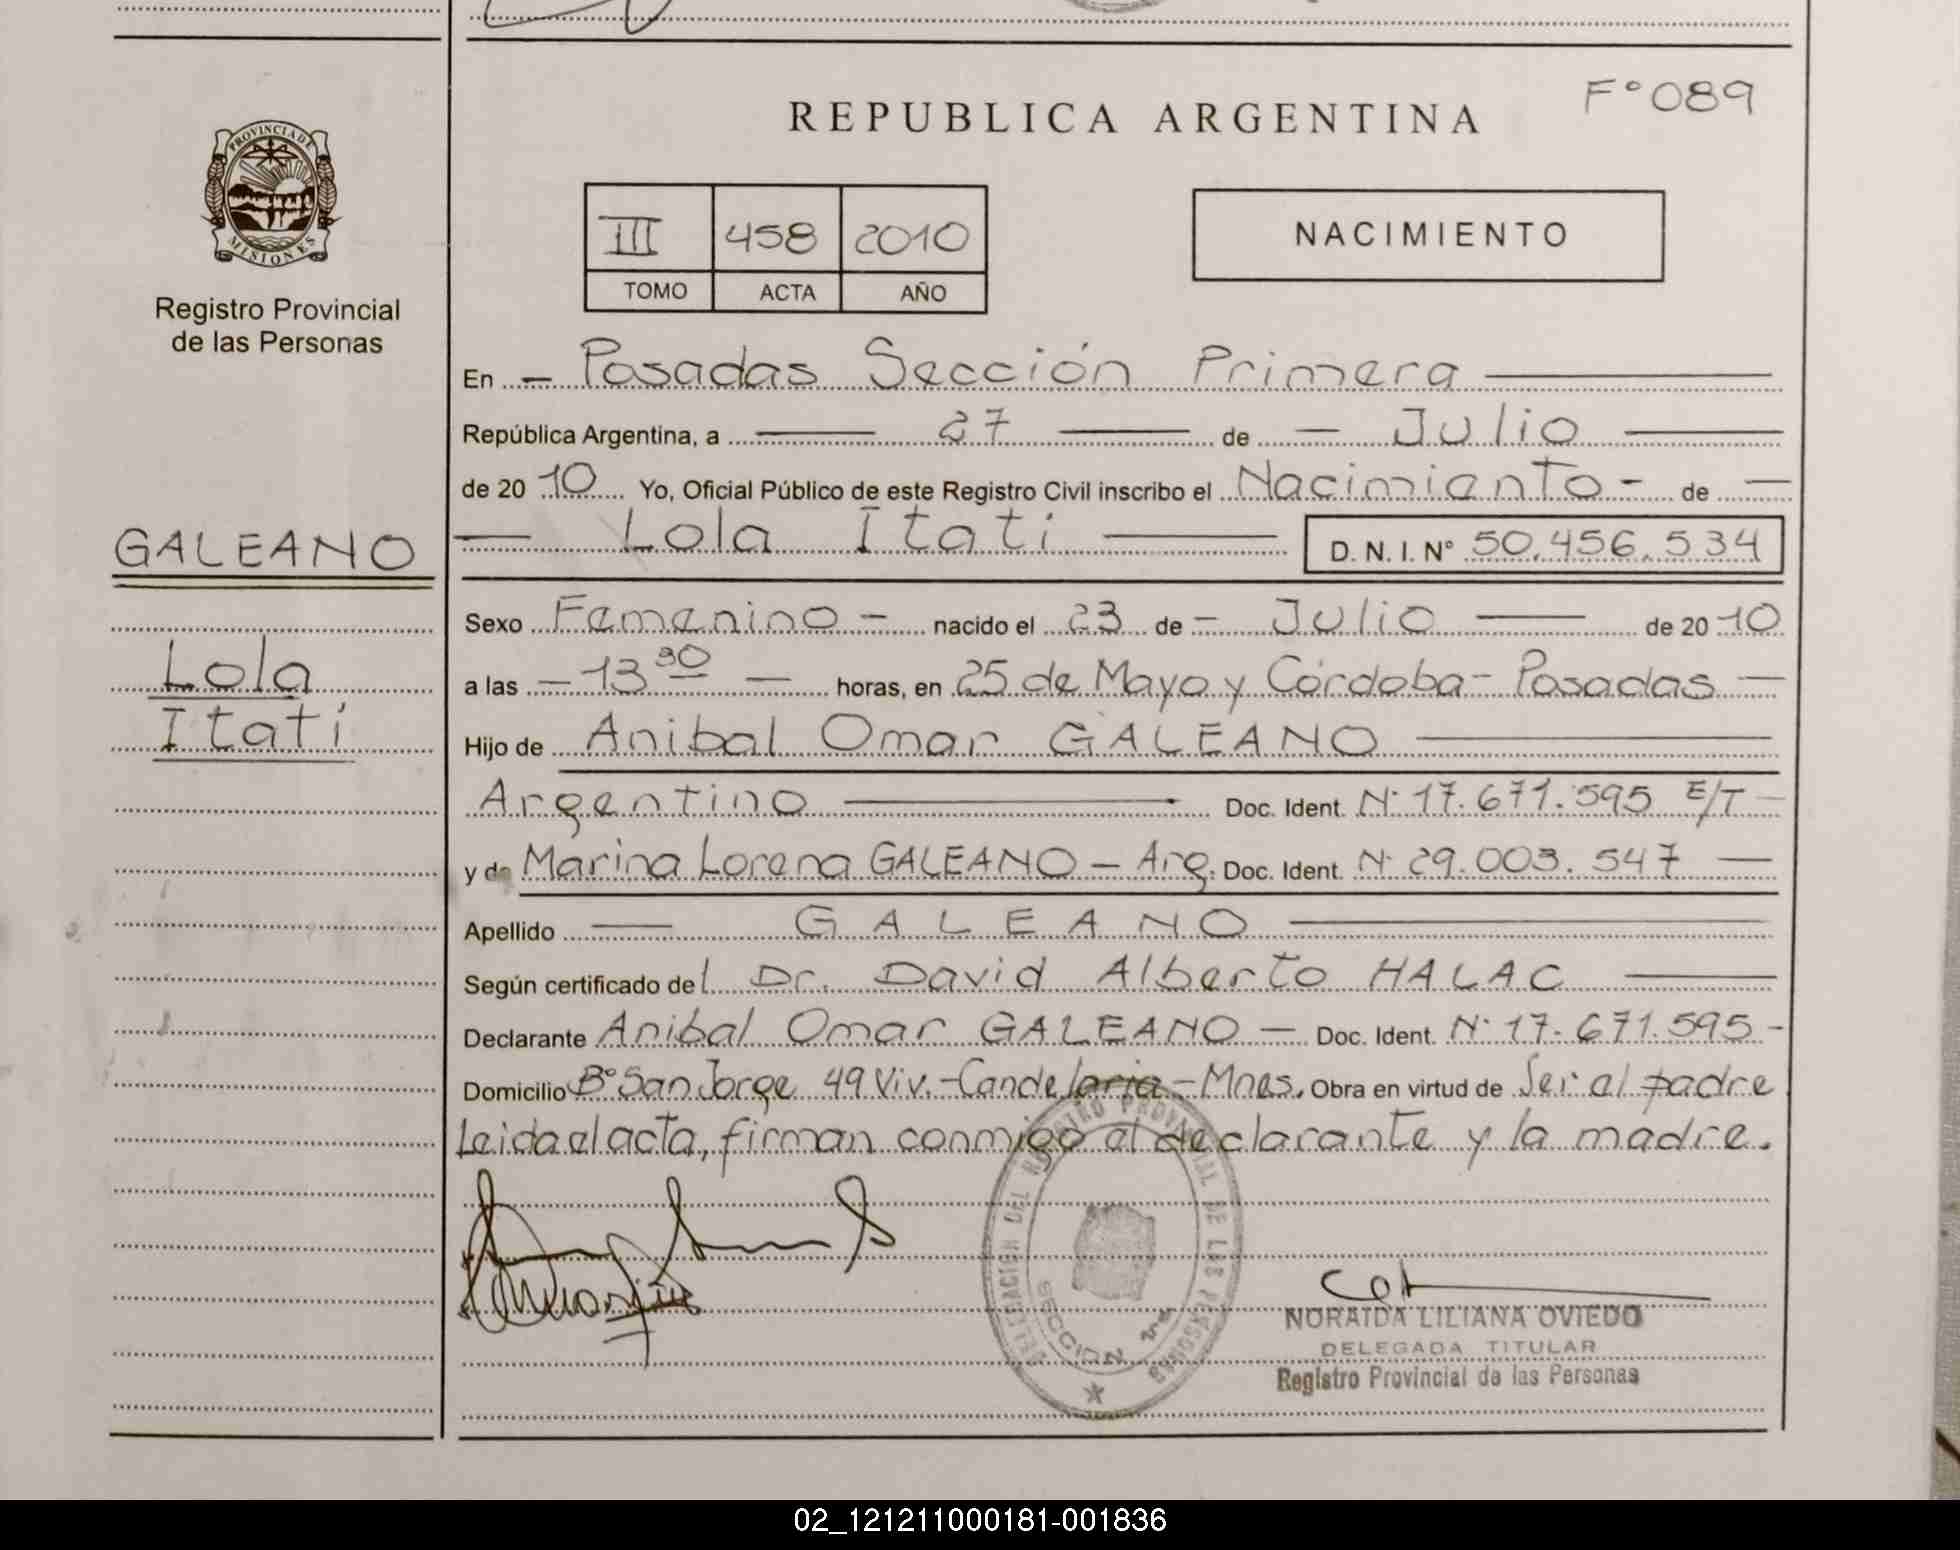 F° 089
REPUBLICA ARGENTINA
PROVINCIA DE
MISIONES
Registro Provincial
de las Personas
III 458 2010
TOMO ACTA AÑO
NACIMIENTO
En – Posadas Sección Primera
República Argentina, a 27 de – Julio
de 20 10 Yo, Oficial Público de este Registro Civil inscribo el Nacimiento - de –
GALEANO
Lola Itatí
D. N. I. Nº 50.456.534
Sexo Femenino – nacido el 23 de – Julio de 20 10
Lola
Itatí
a las – 13 30 – horas, en 25 de Mayo y Córdoba - Posadas –
Hijo de Anibal Omar GALEANO
Argentino Doc. Ident. N· 17.671.595 E/T –
y de Marina Lorena GALEANO – Arg. Doc. Ident. N· 29.003.547 –
Apellido – GALEANO
Según certificado del Dr. David Alberto HALAC
Declarante Anibal Omar GALEANO – Doc. Ident. N· 17.671.595 -
Domicilio B° San Jorge 49 Viv. - Candelaria - Mnes. Obra en virtud de Ser el padre
Leida el acta, firman conmigo el declarante y la madre.
DELEGACION DEL REGISTRO PROVINCIAL DE LAS PERSONAS
SECCION 1ra
NORAIDA LILIANA OVIEDO
DELEGADA TITULAR
Registro Provincial de las Personas
02_121211000181-001836